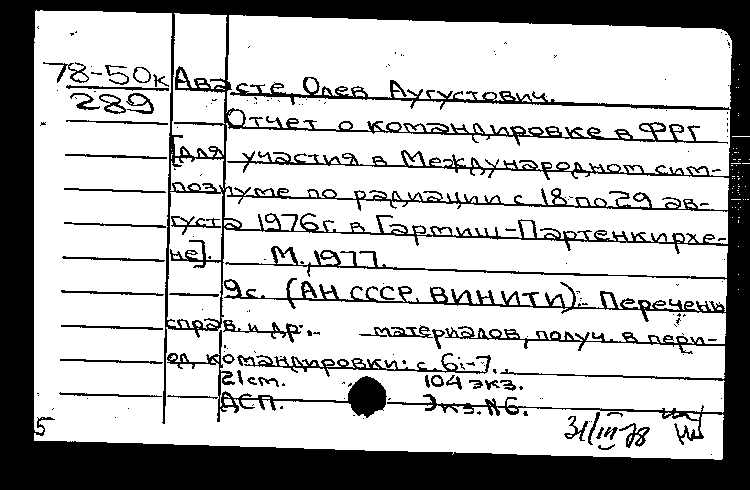 78-50к Авасте, Олев Аугустович.
289
Отчет о командировке в ФРГ
[для участия в Международном сим-
позиуме по радиации с 18 по 29 ав-
густа 1976г. в Гармиш-Партенкирхе-
не]. М., 1977.
9с. (АН СССР. ВИНИТИ). Перечень
справ. и др. материалов, получ. в пери-
од командировки: с. 6-7.
21см. 104 экз.
ДСП. Экз. №6.
5 31/III-78